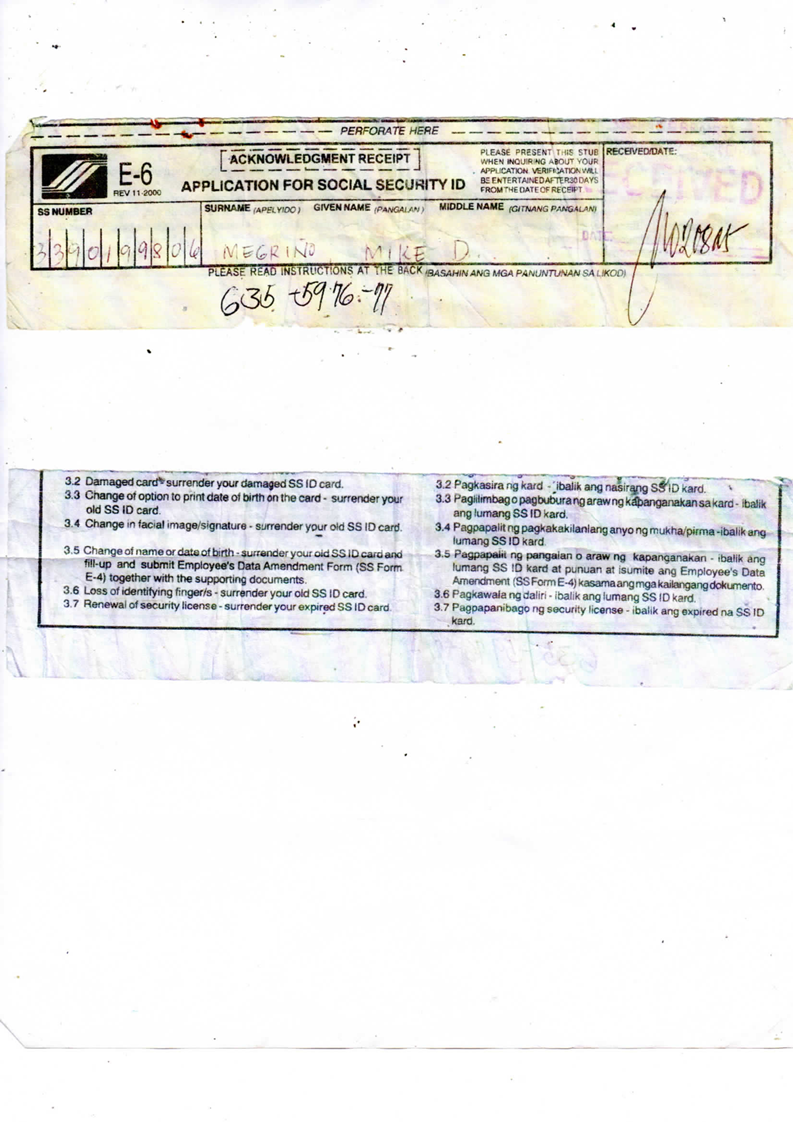 PERFORATE HERE
E-6
REV 11-2000
ACKNOWLEDGMENT RECEIPT
APPLICATION FOR SOCIAL SECURITY ID
PLEASE PRESENT THIS STUB
WHEN INQUIRING ABOUT YOUR
APPLICATION. VERIFICATION WILL
BE ENTERTAINED AFTER 30 DAYS
FROM THE DATE OF RECEIPT
RECEIVED/DATE:
RECEIVED
DATE:
SS NUMBER
SURNAME (APELYIDO) GIVEN NAME (PANGALAN) MIDDLE NAME (GITNANG PANGALAN)
3390199806 MEGRINO MIKE D.
PLEASE READ INSTRUCTIONS AT THE BACK (BASAHIN ANG MGA PANUNTUNAN SA LIKOD)
635-5976-77
3.2 Damaged card - surrender your damaged SS ID card.
3.3 Change of option to print date of birth on the card - surrender your
old SS ID card.
3.4 Change in facial image/signature - surrender your old SS ID card.
3.5 Change of name or date of birth - surrender your old SS ID card and
fill-up and submit Employee's Data Amendment Form (SS Form
E-4) together with the supporting documents.
3.6 Loss of identifying finger/s - surrender your old SS ID card.
3.7 Renewal of security license - surrender your expired SS ID card.
3.2 Pagkasira ng kard - ibalik ang nasirang SS ID kard.
3.3 Paglilimbag o pagbubura ng araw ng kapanganakan sa kard - ibalik
ang lumang SS ID kard.
3.4 Pagpapalit ng pagkakakilanlang anyo ng mukha/pirma - ibalik ang
lumang SS ID kard.
3.5 Pagpapalit ng pangalan o araw ng kapanganakan - ibalik ang
lumang SS ID kard at punuan at isumite ang Employee's Data
Amendment (SS Form E-4) kasama ang mga kailangang dokumento.
3.6 Pagkawala ng daliri - ibalik ang lumang SS ID kard.
3.7 Pagpapanibago ng security license - ibalik ang expired na SS ID
kard.